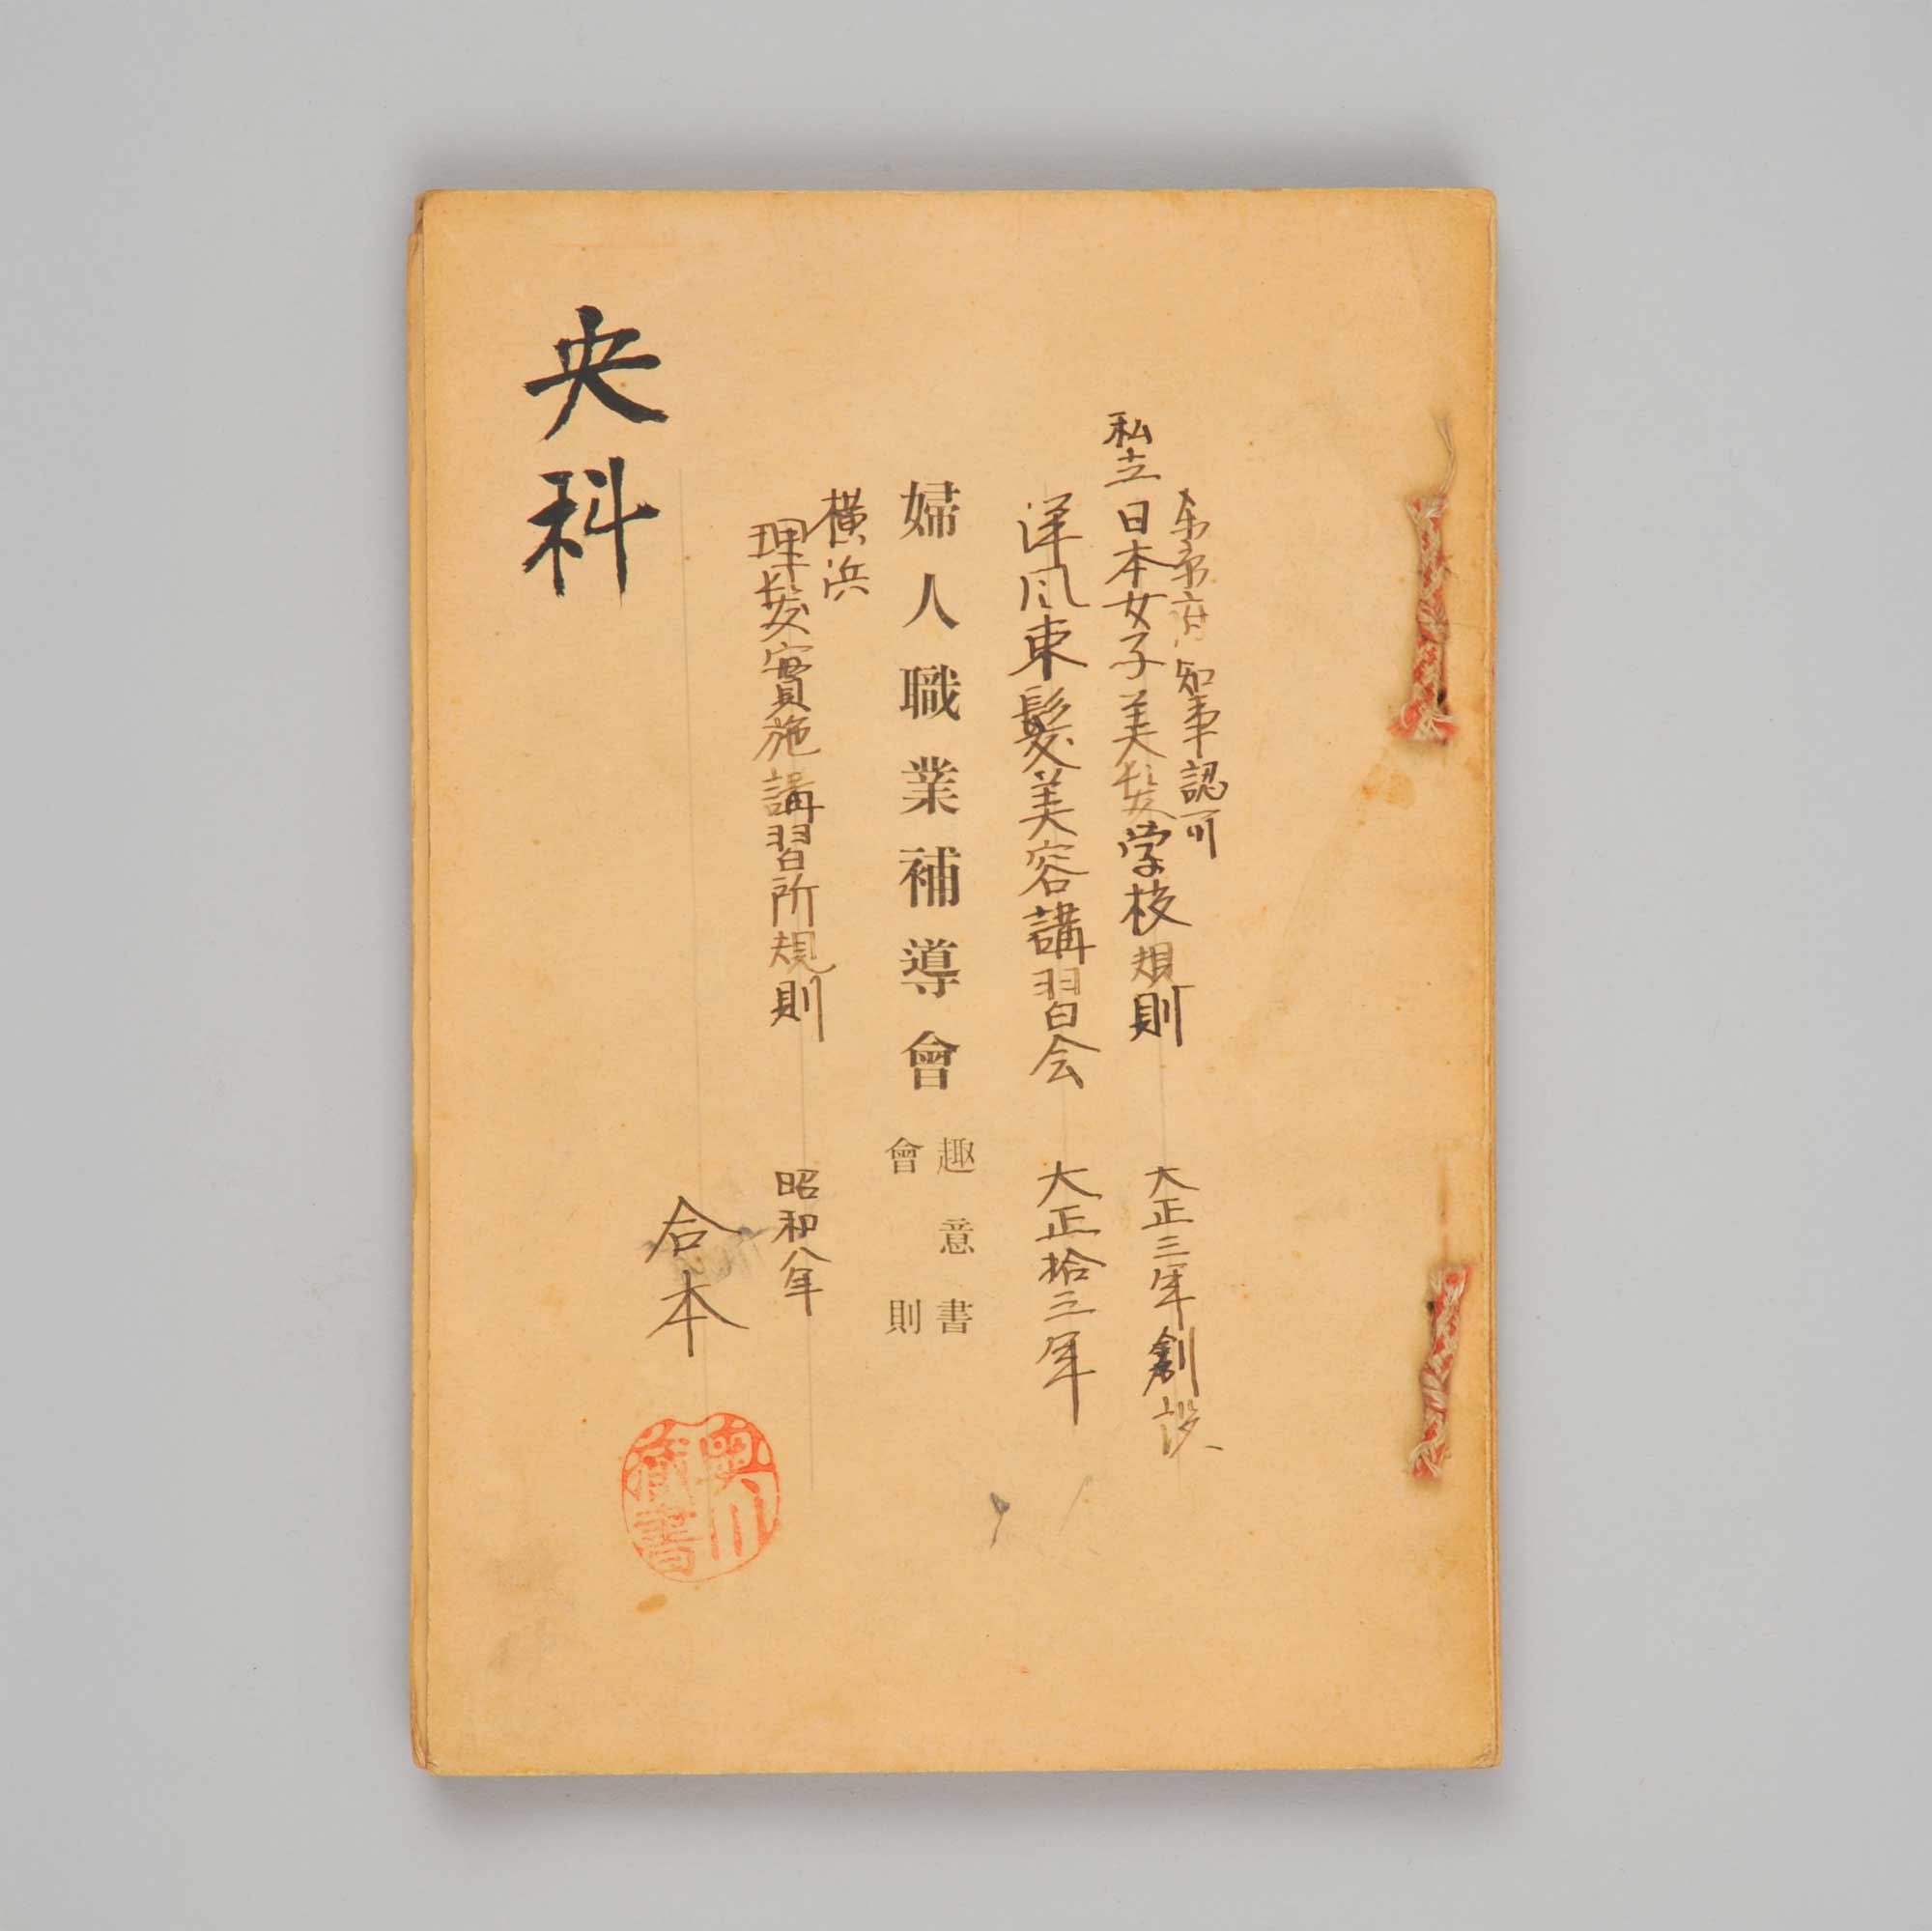 東京府知事認可
私立日本女子美髪学校規則 大正三年創設
洋風束髪美容講習会 大正拾三年
婦人職業補導會 趣意書
會則
横浜
理髪實施講習所規則 昭和八年
合本
央科
奥川
蔵書